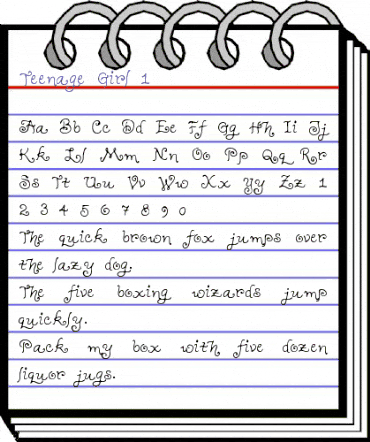 Teenage Girl 1
Aa Bb Cc Dd Ee Ff Gg Hh Ii Jj
Kk Ll Mm Nn Oo Pp Qq Rr
Ss Tt Uu Vv Ww Xx Yy Zz 1
2 3 4 5 6 7 8 9 0
The quick brown fox jumps over
the lazy dog.
The five boxing wizards jump
quickly.
Pack my box with five dozen
liquor jugs.